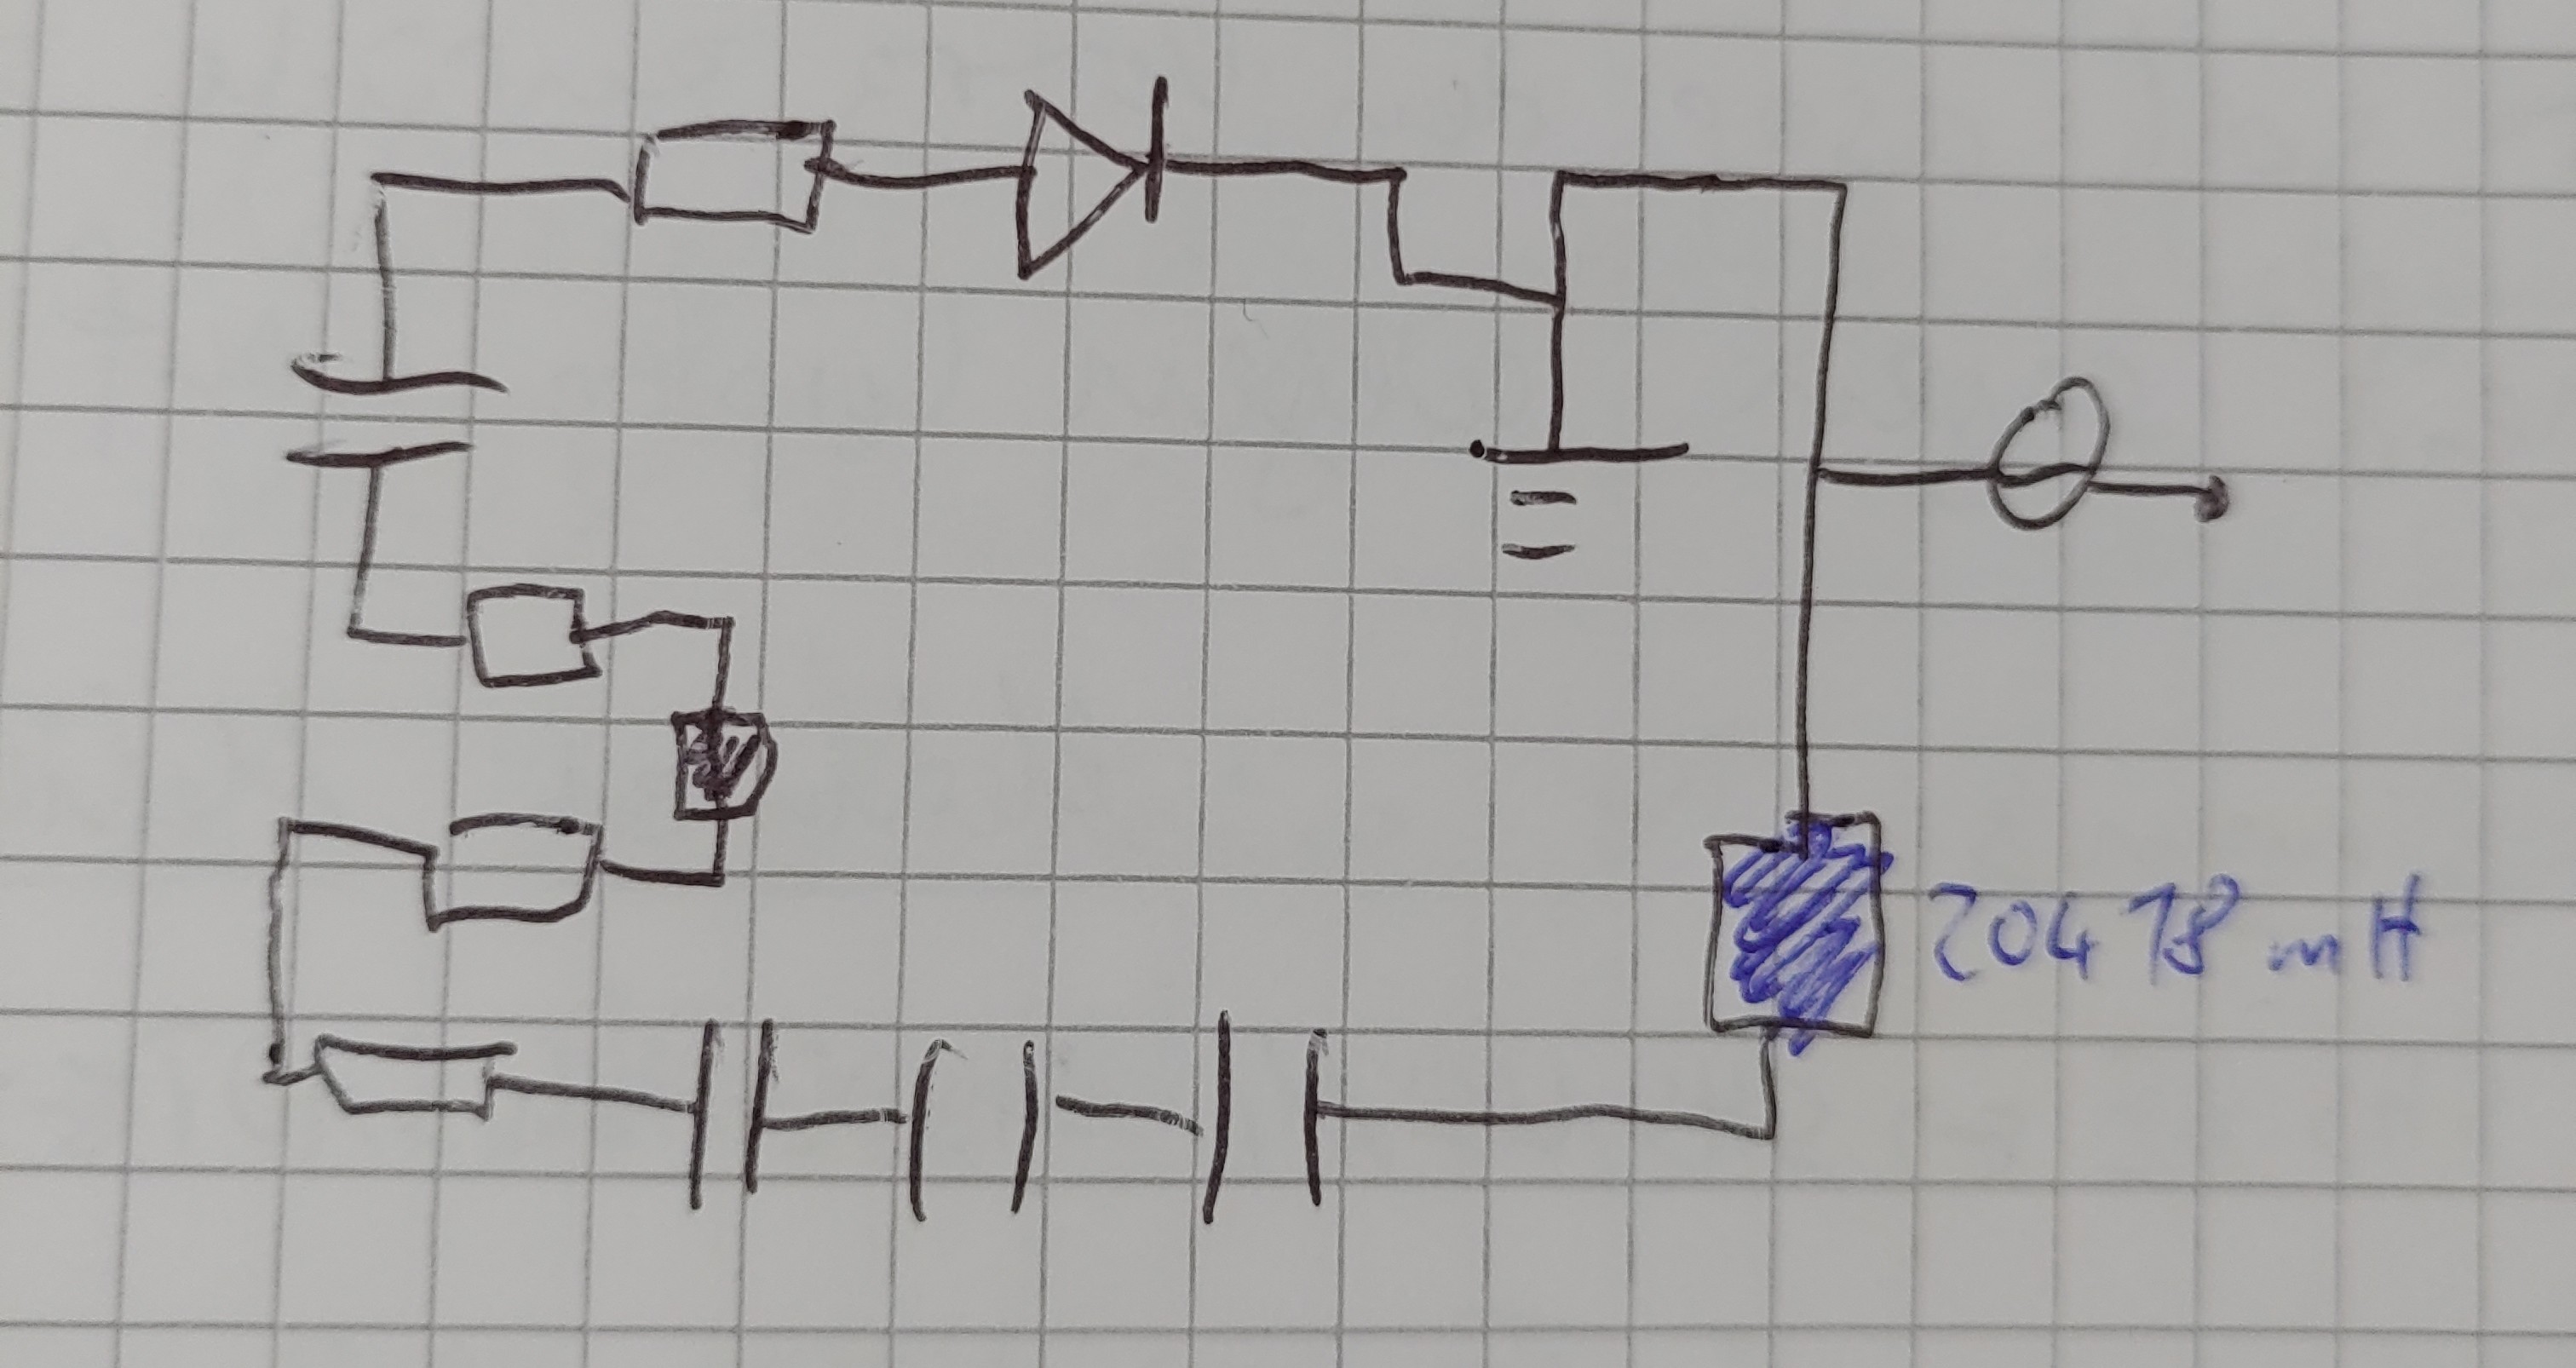 20478 mH